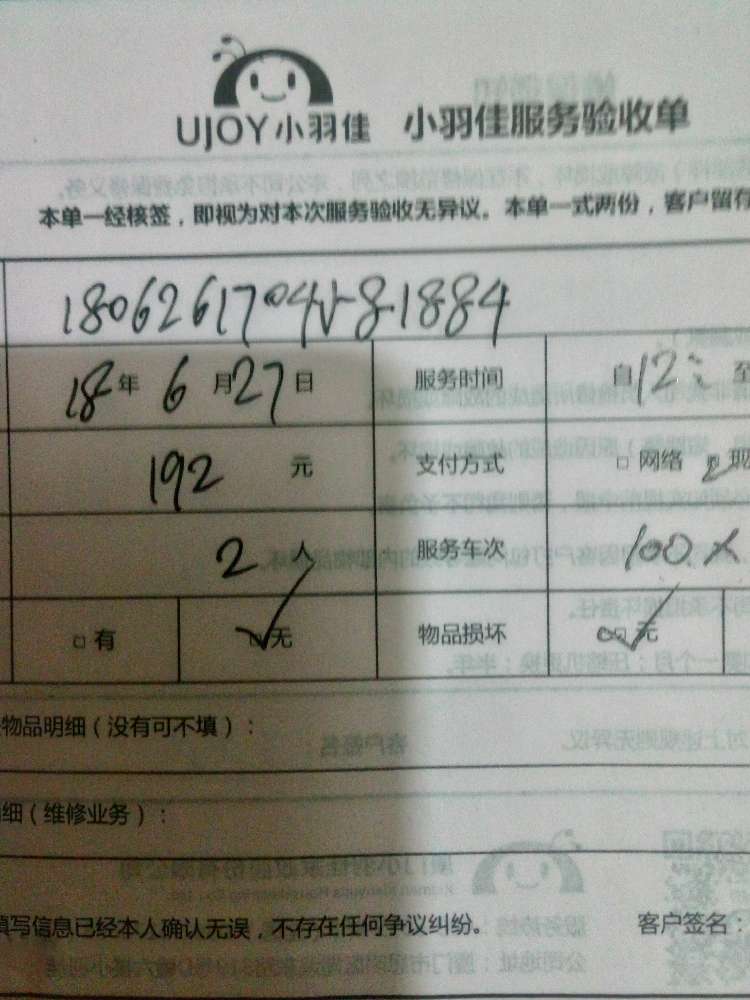 UJOY小羽佳 小羽佳服务验收单
本单一经核签，即视为对本次服务验收无异议。本单一式两份，客户留存
18年6月27日 服务时间 自12: 至
192元 支付方式 □ 网络 现
2人 服务车次 100
□ 有 □ 无 物品损坏 □ 无
物品明细（没有可不填）：
细（维修业务）：
填写信息已经本人确认无误，不存在任何争议纠纷。 客户签名：